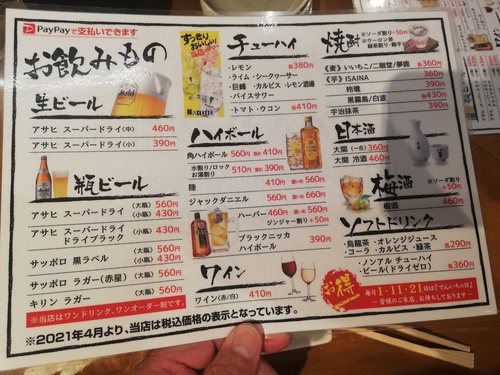 PayPayで支払いできます
お飲みもの
生ビール
アサヒ スーパードライ(中) 460円
アサヒ スーパードライ(小) 390円
瓶ビール
アサヒ スーパードライ (大瓶) 560円
(小瓶) 430円
アサヒ スーパードライ
ドライブラック (小瓶) 430円
サッポロ 黒ラベル (大瓶) 560円
(小瓶) 430円
サッポロ ラガー(赤星) (大瓶) 560円
キリン ラガー (大瓶) 560円
※当店はワンドリンク、ワンオーダー制です。
※2021年4月より、当店は税込価格の表示となっています。
すっきり
おいしい!
チューハイ
・レモン 各380円
・ライム・シークヮーサー
・巨峰・カルピス・レモン酒場
・バイスサワー
・トマト・ウコン 各410円
ハイボール
角ハイボール 560円 410円
水割り/ロック
お湯割り 510円 390円
陸 410円 濃いめ 560円
ジャックダニエル 560円 濃いめ 660円
ハーパー 460円 濃いめ 560円
ジンジャー割り +50円
ブラックニッカ
ハイボール 390円
ワイン
ワイン(赤/白) 410円
焼酎
※ソーダ割り +50円
※ウーロン茶
緑茶割り・梅干し
(麦) いいちこ/二階堂/夢鹿 各360円
(芋) ISAINA 360円
玲瓏 390円
黒霧島/白波 各430円
宇治抹茶 390円
日本酒
大関 (一合) 360円
大関 冷酒 460円
梅酒
※ソーダ割り
+50円
梅酒 460円
ソフトドリンク
・烏龍茶 ・オレンジジュース
・コーラ ・カルピス・緑茶 各290円
・ノンアル チューハイ
・ビール(ドライゼロ) 各360円
お得
毎月1・11・21日は「でんいちの日」
〜皆様のご来店、お待ちしております〜